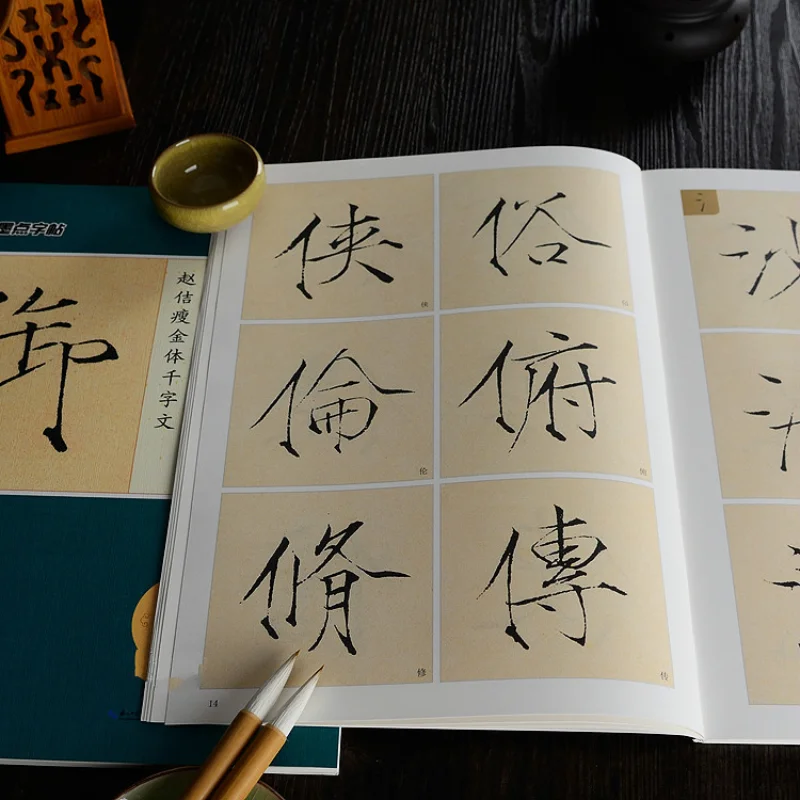 墨点字帖
御
赵佶瘦金体千字文
俠 俗
侠 俗
倫 俯
伦 俯
脩 傳
修 传
14
氵
沙